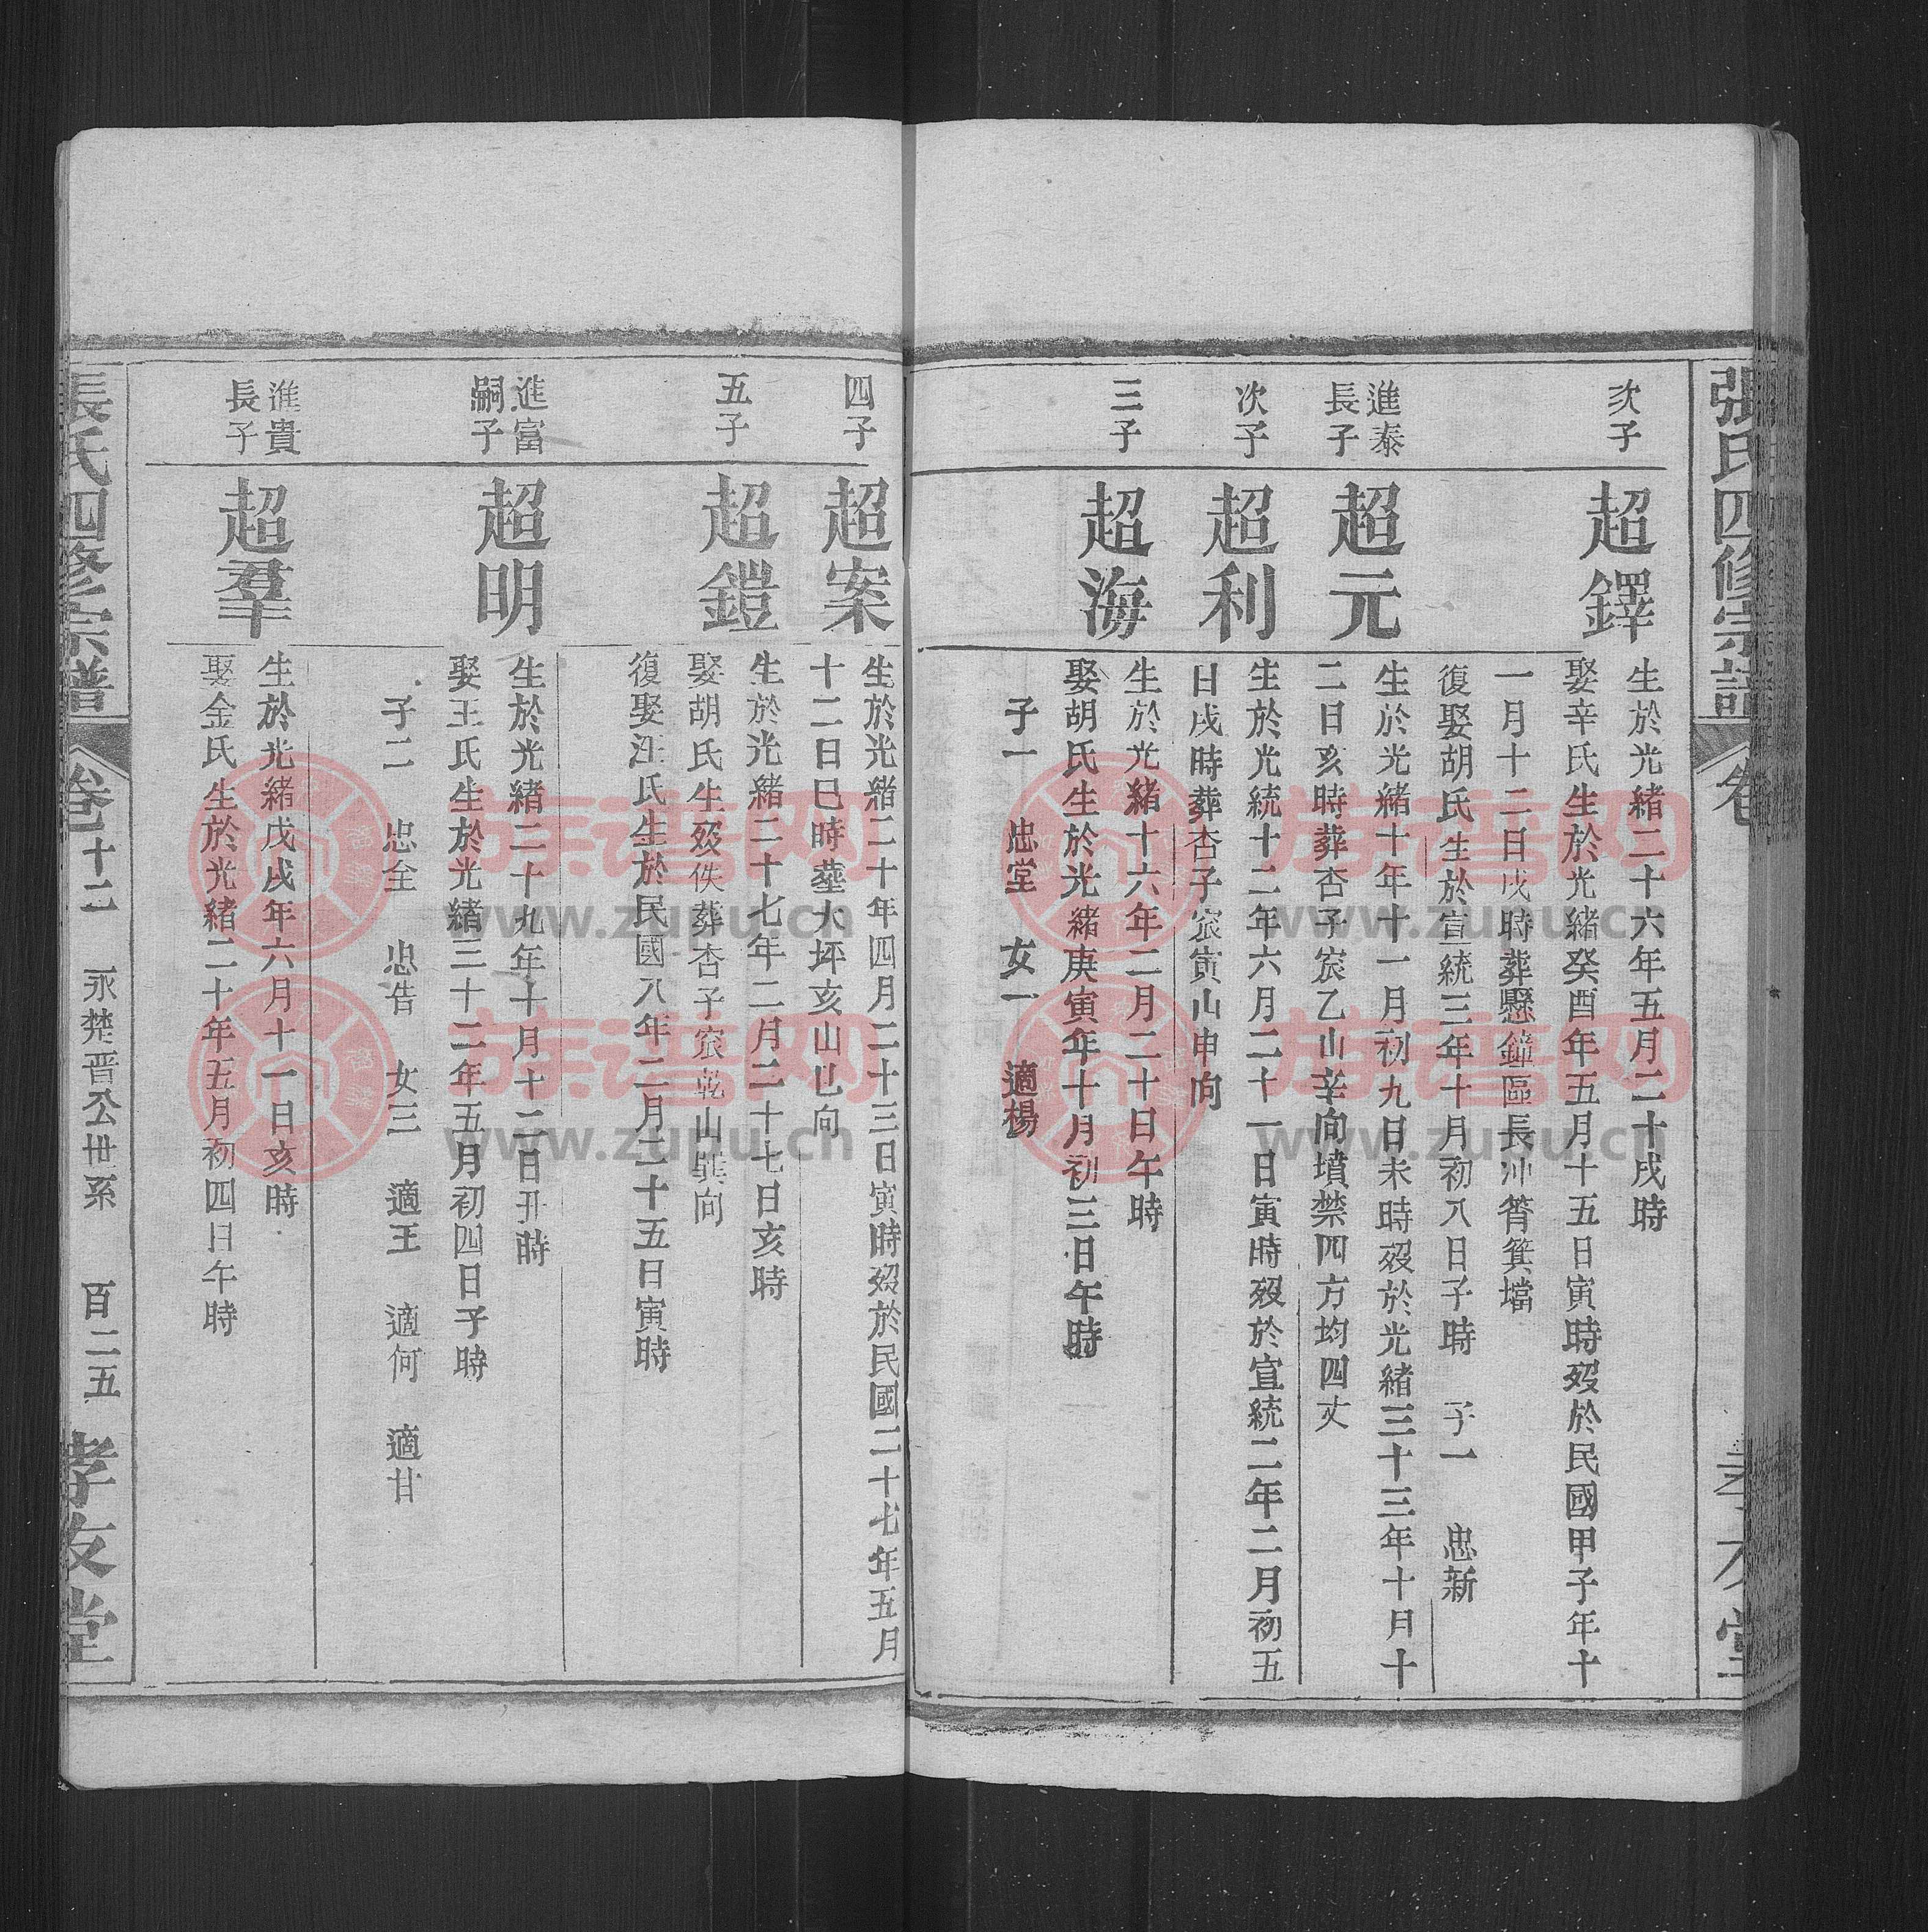 張氏四修宗譜 卷
孝友堂
次子
超鐸
生於光緒二十六年五月二十戌時
娶辛氏生於光緒癸酉年五月十五日寅時殁於民國甲子年十
一月十二日戌時葬懸鐘區長沖筲箕壋
復娶胡氏生於宣統三年十月初八日子時 子一 忠新
進泰
長子
超元
生於光緒十年十一月初九日未時殁於光緒三十三年十月十
二日亥時葬杏子㝩乙山辛向墳禁四方均四丈
次子
超利
生於光統十二年六月二十一日寅時殁於宣統二年二月初五
日戌時葬杏子㝩寅山申向
三子
超海
生於光緒十六年二月二十日午時
娶胡氏生於光緒庚寅年十月初三日午時
子一 忠堂 女一 適楊
四子
超案
生於光緒二十年四月二十三日寅時殁於民國二十七年五月
十二日巳時塟大坪亥山巳向
五子
超鎧
生於光緒二十七年二月二十七日亥時
娶胡氏生殁佚葬杏子㝩乾山巽向
復娶汪氏生於民國八年二月二十五日寅時
進富
嗣子
超明
生於光緒二十九年十月十二日丑時
娶王氏生於光緒三十二年五月初四日子時
子二 忠全 忠告 女三 適王 適何 適甘
進貴
長子
超羣
生於光緒戊戌年六月十一日亥時
娶金氏生於光緒二十年五月初四日午時
張氏四修宗譜 卷十二 永楚晋公世系 百二五 孝友堂
族谱网
www.zupu.cn
族谱网
www.zupu.cn
族谱网
www.zupu.cn
族谱网
www.zupu.cn